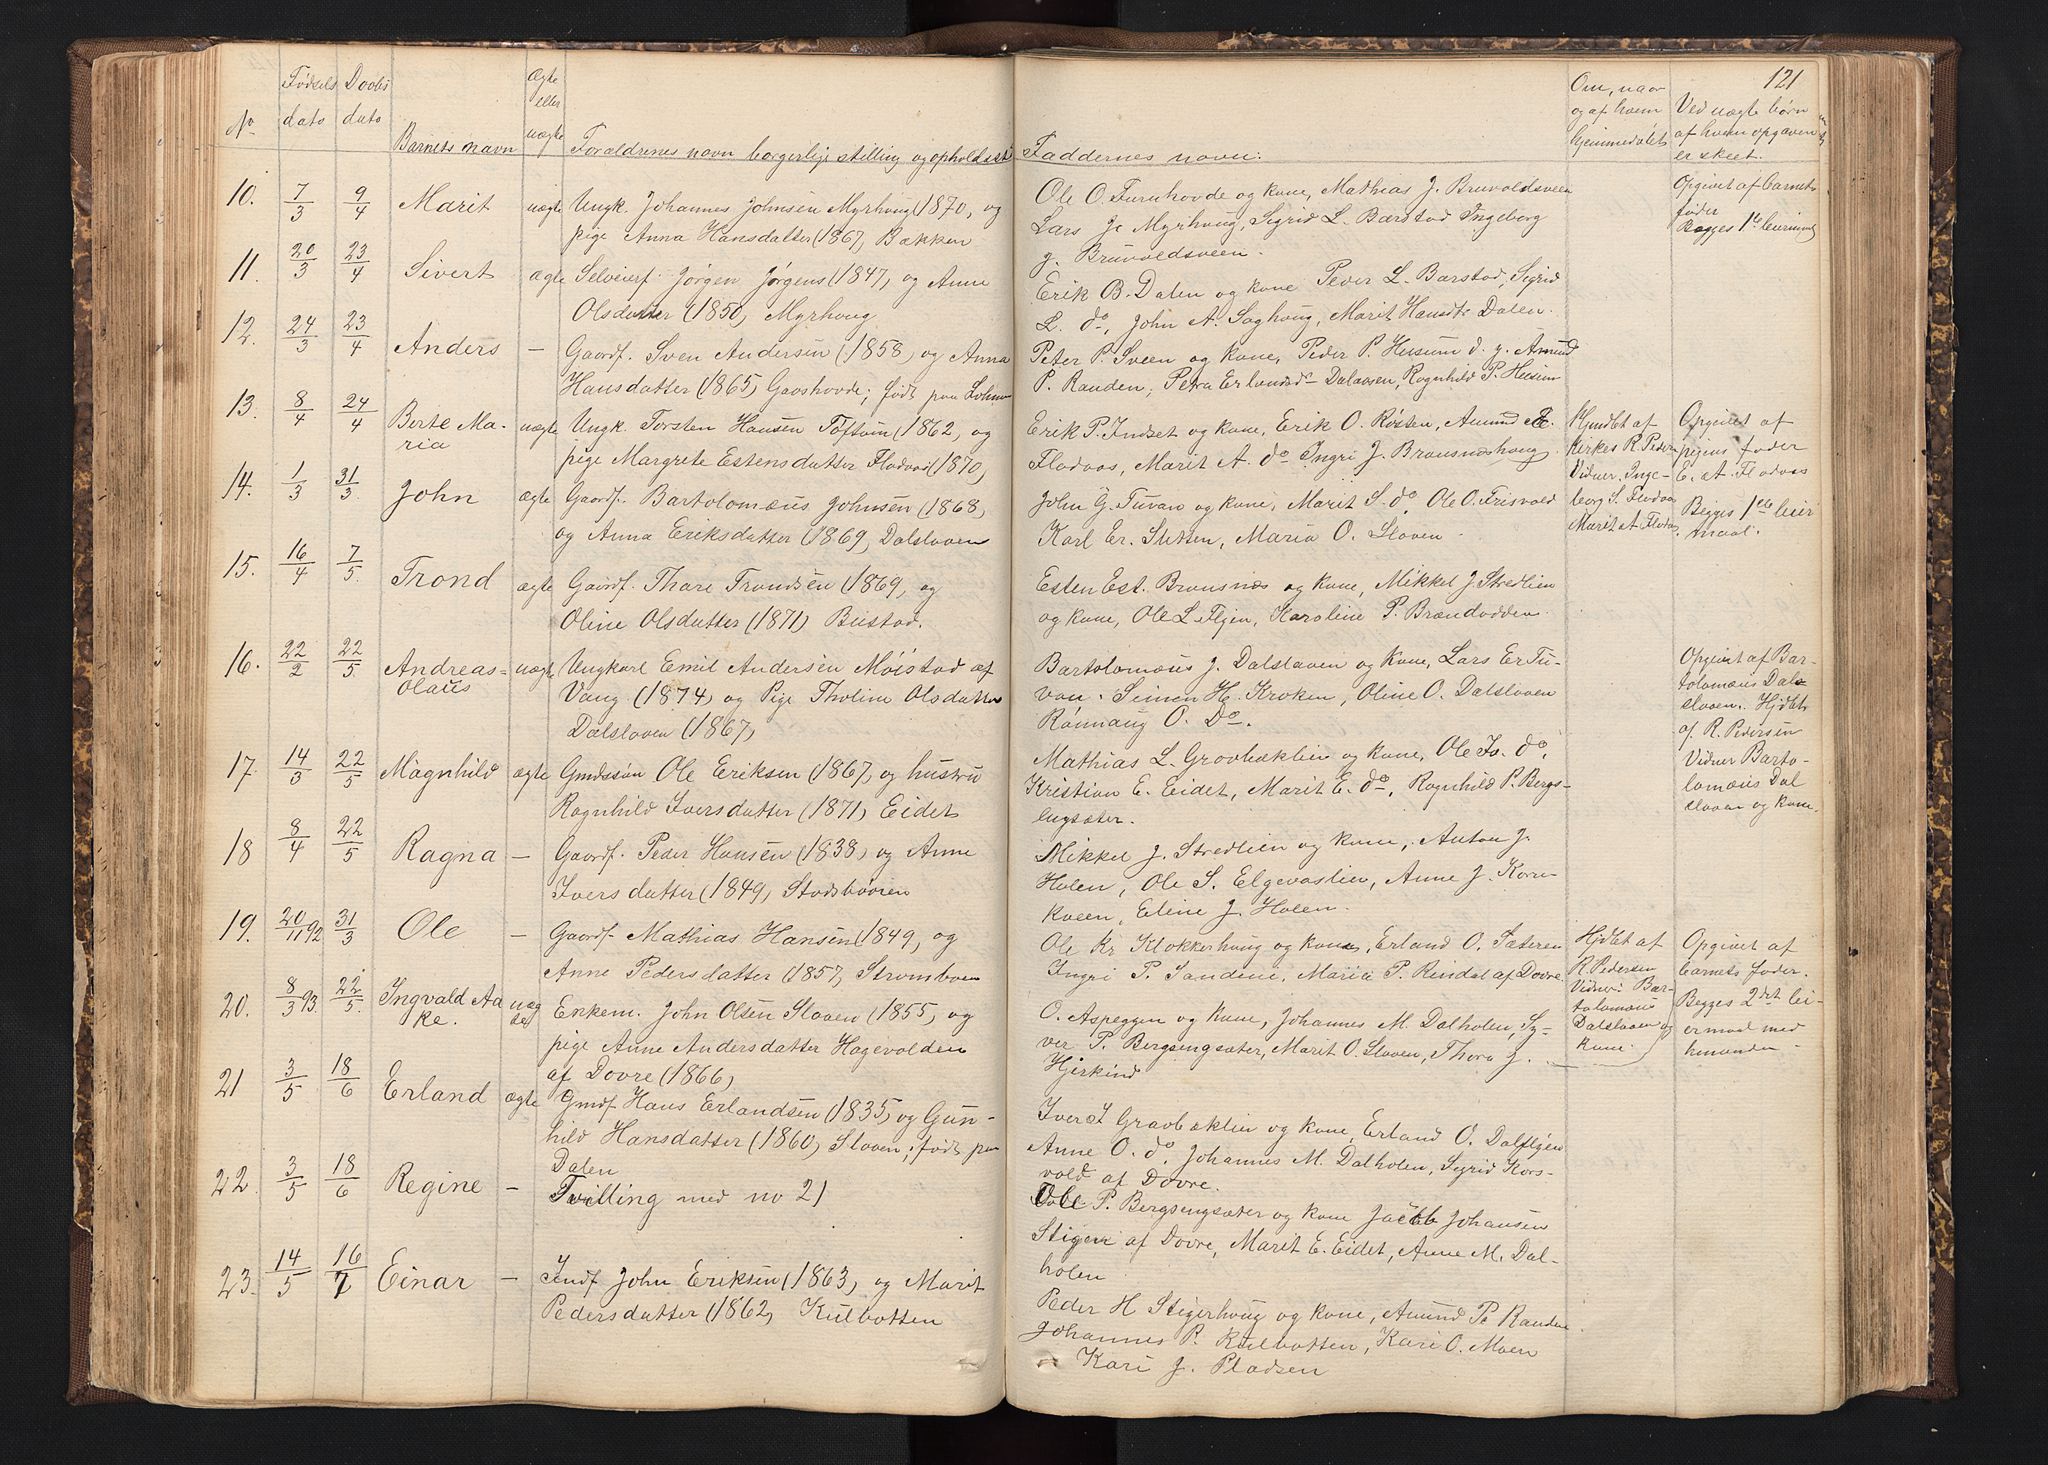 121
No
Fødsels dato
Daabs dato
Barnets navn
Ægte eller uægte
Forældrenes navn borgerlige stilling og opholdsst
Faddernes navn:
Om, naar
og af hvem
hjemmedøbt
Ved uægte børn
af hvem opgaven
er skeet.
10. 7/3 9/4 Marit uægte Ungk. Johannes Johnsen Myrhoug (1870, og
pige Anna Hansdatter (1867, Bækken
Ole O. Furuhovde og kone, Mathias J. Bruvoldsveen
Lars J. Myrhoug, Sigrid L. Barstad Ingeborg
J. Bruvoldsveen.
Opgivet af barnets
fader
Begges 1te leiermaal
11. 20/3 23/4 Sivert ægte Selveierf. Jørgen Jørgens (1847, og Anne
Olsdatter (1850, Myrhoug
Erik B. Dalen og kone Peder L. Barstad, Sigrid
L. do, John A. Soghoug, Marit Hansdt. Dalen.
12. 24/3 23/4 Anders — Gaardf. Sven Andersen (1858 og Anna
Hansdatter (1865, Gaashovde; født paa
Peter P. Sveen og kone, Peder P. Husum d. y. Amund
P. Randen, Petra Erlandsd. Dalaasen, Rognhild P. Husum
13. 8/4 24/4 Berte Ma-
ria uægte Ungk. Torsten Hansen Toftum (1862, og
pige Margrete Estensdatter Flodvas (1870,
Erik P. Indset og kone, Erik O. Røsten, Amund
Flodvas, Marit A. do Ingri J. Brænsneshoug
Hjmdbt af
Kirkes R. Peders
Vidner. Inge-
borg S. Flodvas
Marit A. Flodvas.
Opgivet af
pigens fader
E. A. Flodvas
Begges 1ste leier
maal.
14. 1/3 31/3 John ægte Gaardf. Bartolomæus Johnsen (1868,
og Anna Eriksdatter (1869, Dalslaaen
John G. Tuvan og kone, Marit S. do, Ole O. Frisvold
Karl Er. Sletten, Maria O. Slaaen.
15. 16/4 7/5 Trond ægte Gaardf. Thare Trondsen (1869, og
Oline Olsdatter (1871) Bustad.
Esten Est. Brænsnæs og kone, Mikkel J. Stredlien
og kone, Ole L. Fljen, Karoline P. Brændvadden.
16. 22/2 22/5 Andreas-
Olaus uægte Ungkarl Emil Andersen Moistad af
Vang (1874) og Pige Tholine Olsdatter
Dalslaaen (1867,
Bartolomæus J. Dalslaaen og kone, Lars Er Tu-
van. Simen H. Kroken, Oline O. Dalslaaen
Rønnaug O. Do.
Opgivet af Bar-
tolomæus Dal-
slaaen. Hjdbt
af R. Pedersen
Vidner Barto-
lomæus Dal
slaaen og kone.
17. 14/3 22/5 Magnhild ægte Gmdssøn Ole Eriksen (1867, og hustru
Ragnhild Iversdatter (1871, Eidet
Mathias L. Gravbæklien og kone, Ole Iv. do,
Kristian E. Eidet, Marit E. do, Ragnhild P. Bergs-
engsæter.
18 8/4 22/5 Ragna — Gaardf. Peder Hansen (1838) og Anne
Iversdatter (1849, Stadsbøien
Mikkel J. Stredlien og kone, Anton J.
Holen, Ole S. Elgevaslien, Anne J. Korn-
kveen, Eline J. Holen.
19. 20/11 92 31/3 Ole — Gaardf. Mathias Hansen (1849, og
Anne Pedersdatter (1857, Strømboen
Ole Kr Klokkerhoug og kone, Erland O. Sæteren
Ingri P. Sandene, Maria P. Rindal af Dovre
20. 8/3 93. 22/5. Ingvald Aa-
ke. uæg
te Enkem. John Olsen Slaaen (1855, og
pige Anne Andersdatter Hagevolden
af Dovre (1866,
O. Aspeggen og kone, Johannes M. Dalholen, Sy-
ver P. Bergsengsæter, Marit O. Slaaen, Thora J.
Hjerkind
Hjdbt af
R. Pedersen
Vidner: Bar-
tolomæus
Dalslaaen og
kone.
Opgivet af
barnets fader.
Begges 2det lei-
ermaal med
hinanden
21 3/5 18/6 Erland ægte Gmdf Hans Erlandsen (1835, og Gun-
hild Hansdatter (1860, Slaaen; født paa
Dalen
Iver I Gravbæklien og kone, Erland O. Dalfljen
Anne O. do, Johannes M. Dalholen, Sigrid Kors-
vold af Dovre.
22. 3/5 18/6 Regine — Tvilling med no 21
Ole P. Bergsengsæter og kone Jacob Johansen
Stigen af Dovre, Marit E. Eidet, Anne M. Dal-
holen
23. 14/5 16/7 Einar — Indf John Eriksen (1863, og Marit
Pedersdatter (1862, Kulbotten
Peder H Stigerhoug og kone, Amund P. Randen
Johannes P. Kulbotten, Kari O. Moen
Kari J. Pladsen